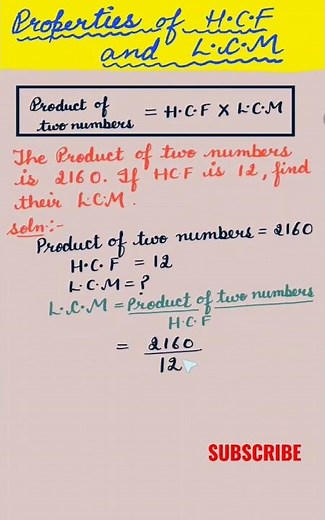 Properties of H.C.F
and L.C.M
Product of
two numbers = H.C.F X L.C.M
The Product of two numbers
is 2160. If HCF is 12, find
their L.C.M.
soln:-
Product of two numbers = 2160
H.C.F = 12
L.C.M = ?
L.C.M = Product of two numbers
H.C.F
= 2160
12
SUBSCRIBE